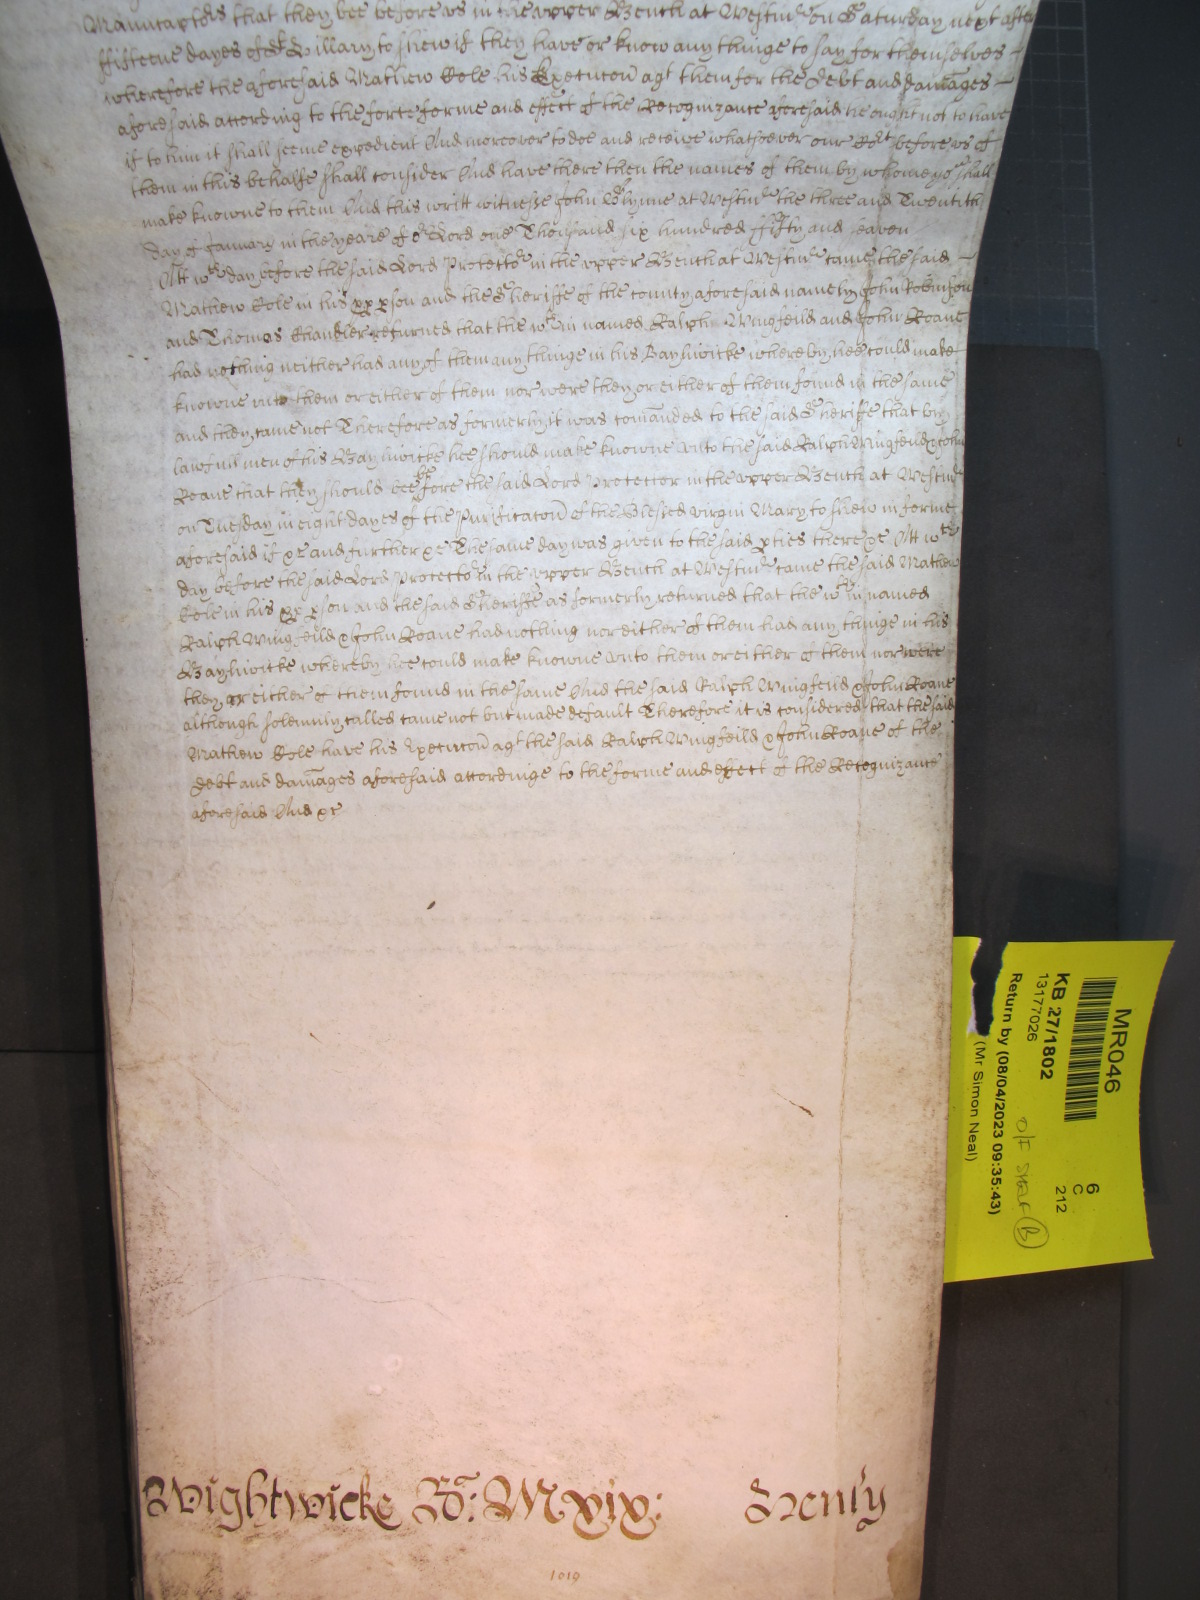 Manucaptors that they bee before us in the upper Bench at Westmr on Saturday next after
ffifteene dayes of St Hillary to shew if they have or know any thinge to say for themselves
wherefore the aforesaid Mathew Cole his Execucon agt them for the debt and damages
aforesaid according to the force forme and effect of the Recognizance aforesaid he ought not to have
if to him it shall seeme expedient And moreover to doe and receive whatsoever our Cort before us of
them in this behalfe shall consider And have there then the names of them by whome yo shall
make knowne to them And this writt witnesse John Glynne at Westmr the three and Twentith
day of January in the yeare of or Lord one Thousand six hundred fifty and seaven
Att wch day before the said Lord Protector in the upper Bench at Westmr came the said
Mathew Cole in his pp pson and the Sheriffe of the county aforesaid namely John Robinson
and Thomas Chandler returned that the wthin named Ralph Wingfeild and John Roane
had nothing neither had any of them any thinge in his Baylywicke whereby hee could make
knowne unto them or either of them nor were they or either of them found in the same
and they came not Therefore as formerly it was comanded to the said Sheriffe that by
lawfull men of his Baylywicke hee should make knowne unto the said Ralph Wingfeild & John
Roane that they should bee before the said Lord Protector in the upper Bench at Westmr
on Tuesday in eight dayes of the Purificacon of the Blessed virgin Mary to shew in forme
aforesaid if &c and further &c The same day was given to the said pties there &c Att wch
day before the said Lord Protector in the upper Bench at Westmr came the said Mathew
Cole in his pp pson and the said Sheriffe as formerly returned that the wthin named
Ralph Wingfeild & John Roane had nothing nor either of them had any thinge in his
Baylywicke whereby hee could make knowne unto them or either of them nor were
they or either of them found in the same And the said Ralph Wingfeild & John Roane
although solemnly called came not but made default Therefore it is considered that the said
Mathew Cole have his Execucon agt the said Ralph Wingfeild & John Roane of the
debt and damages aforesaid accordinge to the forme and effect of the Recognizance
aforesaid And &c
Wightwicke Ro: Mxix: Henly
1019
MR046
KB 27/1802
13177026
Return by (08/04/2023 09:35:43)
(Mr Simon Neal)
6
C
212
O/F SHELF B